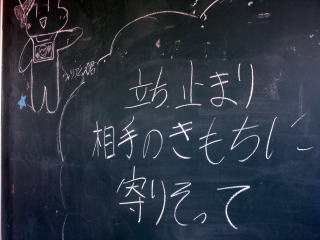 立ち止まり
相手のきもちに
寄りそって